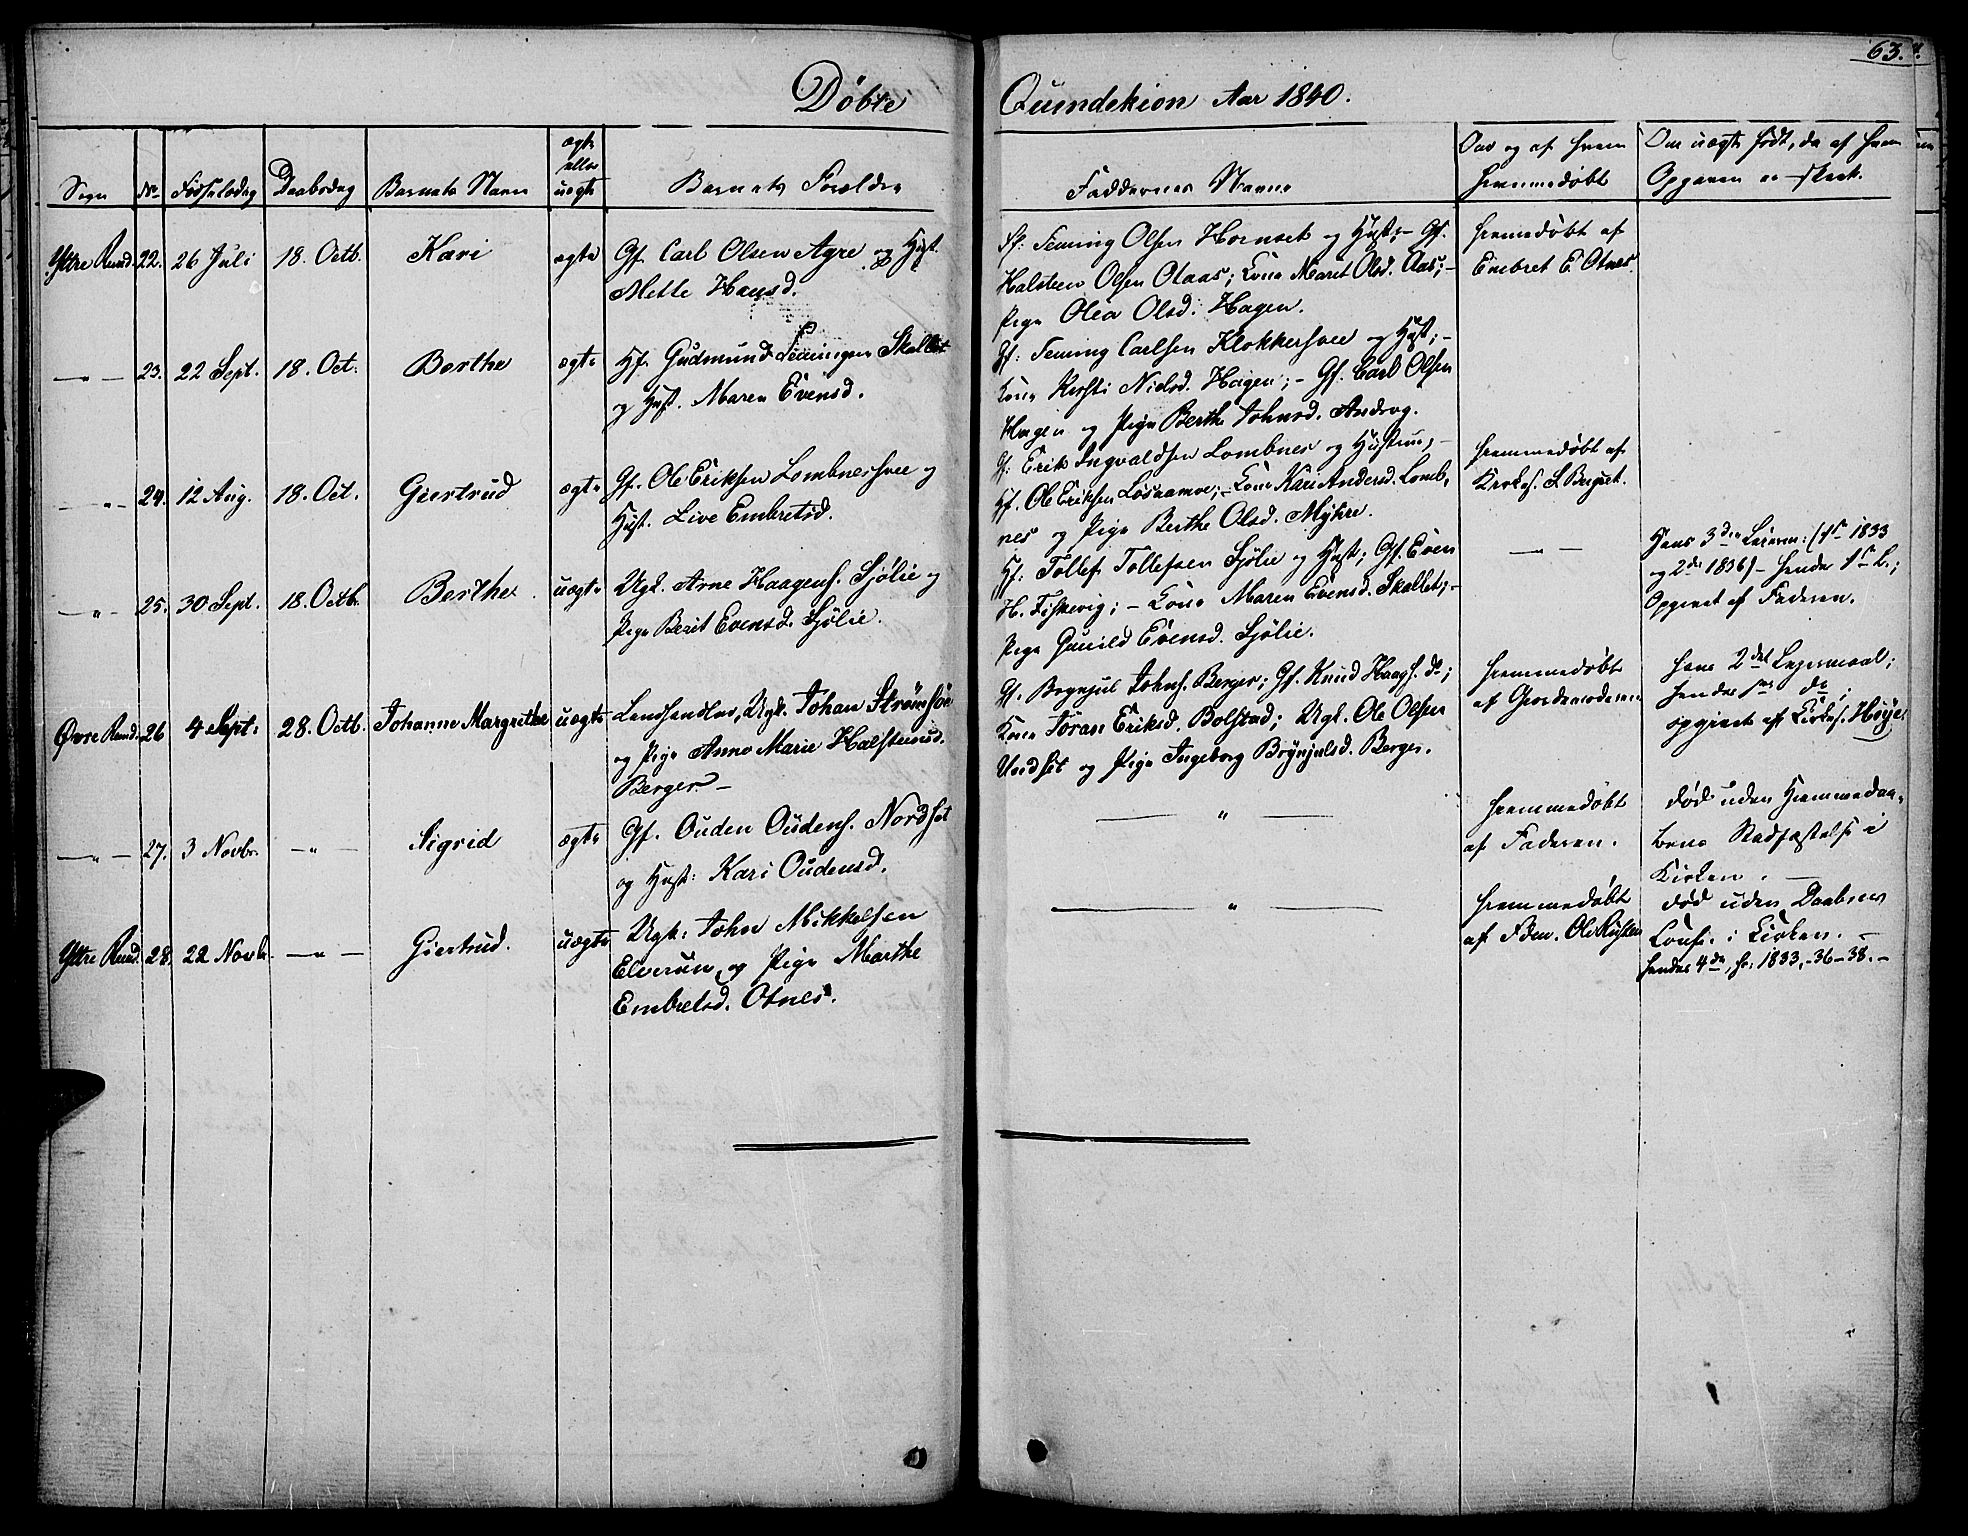 63.
Døbte Qvindekion Aar 1840.
Sogn No. Fødselsdag Daabsdag Barnets Navn ægte eller uægte Barnets Forældre Faddernes Navne Om og af hvem hjemmedøbt Om uægte født, da af hvem Opgaven er skeet.
Yttre Rend. 22. 26 Juli 18. Octb. Kari ægte Gf. Carl Olsen Agre og Hust.
Mette Hansd.
Ff: Feming Olsen Hornset og Hust; - Gf.
Halsteen Olsen Otaas; Kone Maret Olsd. Aas; -
Pige Olea Olsd. Hagen.
hjemmedøbt af
Embret E. Otnes.
—„— 23. 22 Sept. 18. Oct. Berthe ægte Hf. Gudmund Femingsen Skallet
og Hust. Maren Evensd.
Gf: Feming Carlsen Klokkersvee og Hust; -
Kone Kersti Nielsd. Hagen; - Gf. Carl Olsen
Hagen og Pige Berthe Johnsd. Androg.
—„— 24. 12 Aug. 18. Oct. Giertrud ægte Gf. Ole Eriksen Lombnessvee og
Hust. Live Embretsd.
Gf: Erik Ingvaldsen Lombnes og Hustrue; -
Hf. Ole Eriksen Løsaamoe; - Kone Kari Andersd. Lomb,
nes og Pige Berthe Olsd. Myhre.
hjemmedøbt af
Kirkes. L. Berset.
—„— 25. 30 Sept. 18. Octb. Berthe uægte Ugk. Arne Haagens. Sjølie og
Pige Berit Evensd. Sjølie.
Hf: Tollef Tollefsen Sjølie og Hust; Gf. Even
H. Fiskevig; - Kone Maren Evensd. Skallet; -
Pige Gunild Evensd. Sjølie.
— —
Hans 3die Leierm: (1ste 1833
og 2det 1836) - hendes 1ste L.;
Opgivet af Faderen.
Øvre Rend. 26 4 Sept. 28. Octb. Johanne Margrethe uægte Landhandler, Ugk. Johan Strømsøe
og Pige Anne Marie Halsteensd.
Berger. -
Gf. Brynjul Johns. Berger; Gf. Knud Haags. do;
Kone Toran Eriksd. Bolstad; Ugk. Ole Olsen
Undset og Pige Ingeborg Brynjulsd. Berger.
hjemmedøbt
af Gjordemoderen
hans 2det Leiermaal;
hendes 1ste do;
opgivet af Kirkes. Høyer
—„— 27. 3 Novbr. —„— Sigrid ægte Gf. Ouden Oudens. Nordset
og Hust: Kari Oudensd.
— „ —
hjemmedøbt
af Faderen.
død uden Hjemmedaa-
bens Stadfæstelse i
Kirken. —
Yttre Rend. 28. 22 Novbr. —„— Giertrud. uægte Ugk: John Mikkelsen
Elverum, og Pige Marthe
Embretsd. Otnes.
— „ —
hjemmedøbt
af Fden. Ole Rusten
død uden Daabens
Confi. i Kirken. -
hendes 4de, fr: 1833, -36-38. -